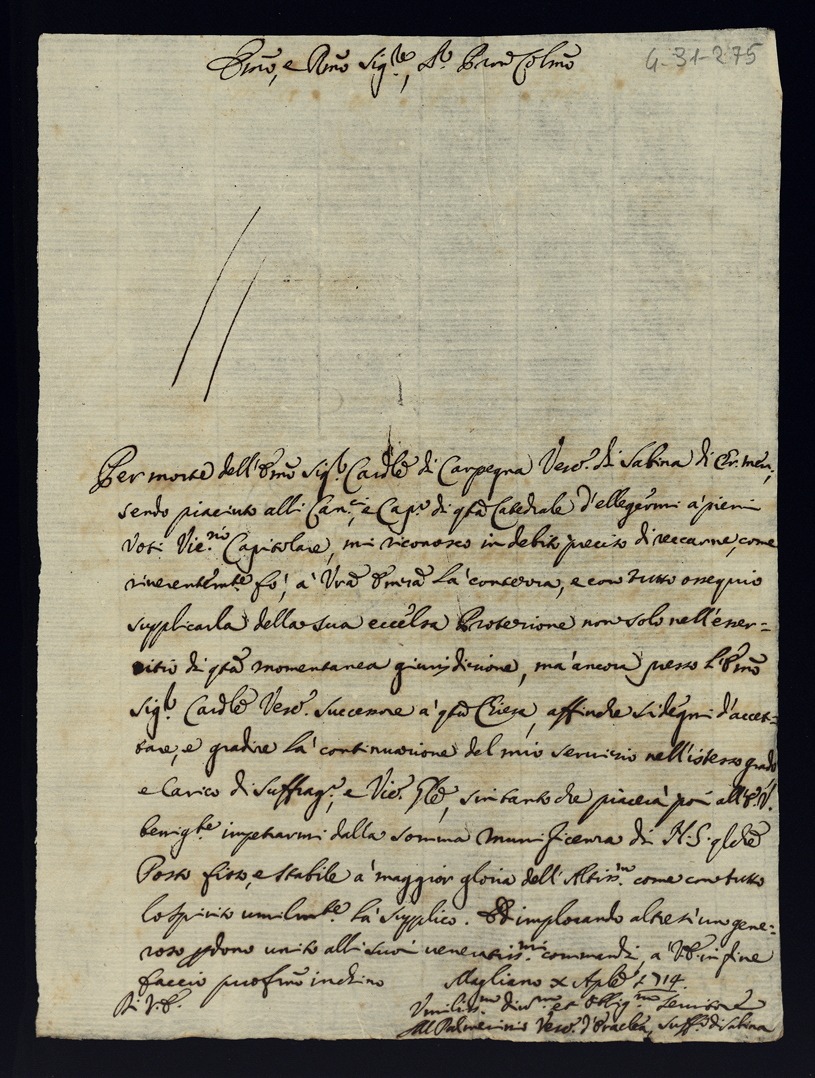 Emo, e Rmo Sig.re, Sr. Pron Colmo
4-31-275
Per morte dell'Emo Sig.r Cardle di Carpegna Vesc.o di Sabina di Ch. mem.,
sendo piaciuto alli Can.ci, e Cap.o di qta Catedrale d'ellegermi a' pieni
Voti Vic.rio Capitolare, mi riconosco in debito preciso di reccarne, come
riverentemte fo', a' Vra Emza la' contezza, e con tutto ossequio
supplicarla della sua eccelsa Protezione non solo nell'esser=
citio di qta momentanea giurisdizione, ma' ancora presso l'Emo
Sig.r Cardle Vesc.o successore a' qta Chiesa, affinche si degni d'accet=
tare, e gradire la' continuazione del mio servizio nell'istesso grado
e Carico di Suffrag.o, e Vic.o Gle, sin tanto che piacerà poi all'E.V.
benig.te impetrarmi dalla somma munificenza di N.S. qlche
Posto fisso, e stabile a' maggior gloria dell'Altiss.mo come con tutto
lo spirito umilmte la' supplico. Ed implorando altresì un gene=
roso pdono unito alli suoi veneratis.mi commandi, a' V.E. infine
faccio profmo inchino Magliano x Aple 1714.
Di V.E.
Umiliss.mo div.mo et Obblig.mo Servitore
M Palmerinis Vesc.o d'Eraclea, Suff.o di Sabina